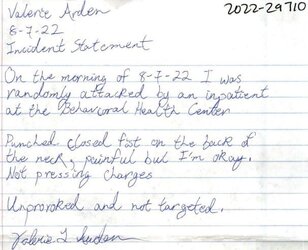 Valerie Arden 2022-29710
8-7-22
Incident Statement
On the morning of 8-7-22 I was
randomly attacked by an inpatient
at the Behavioral Health Center
Punched closed fist on the back of
the neck, painful but I'm okay.
Not pressing charges
Unprovoked and not targeted.
Valerie L Arden